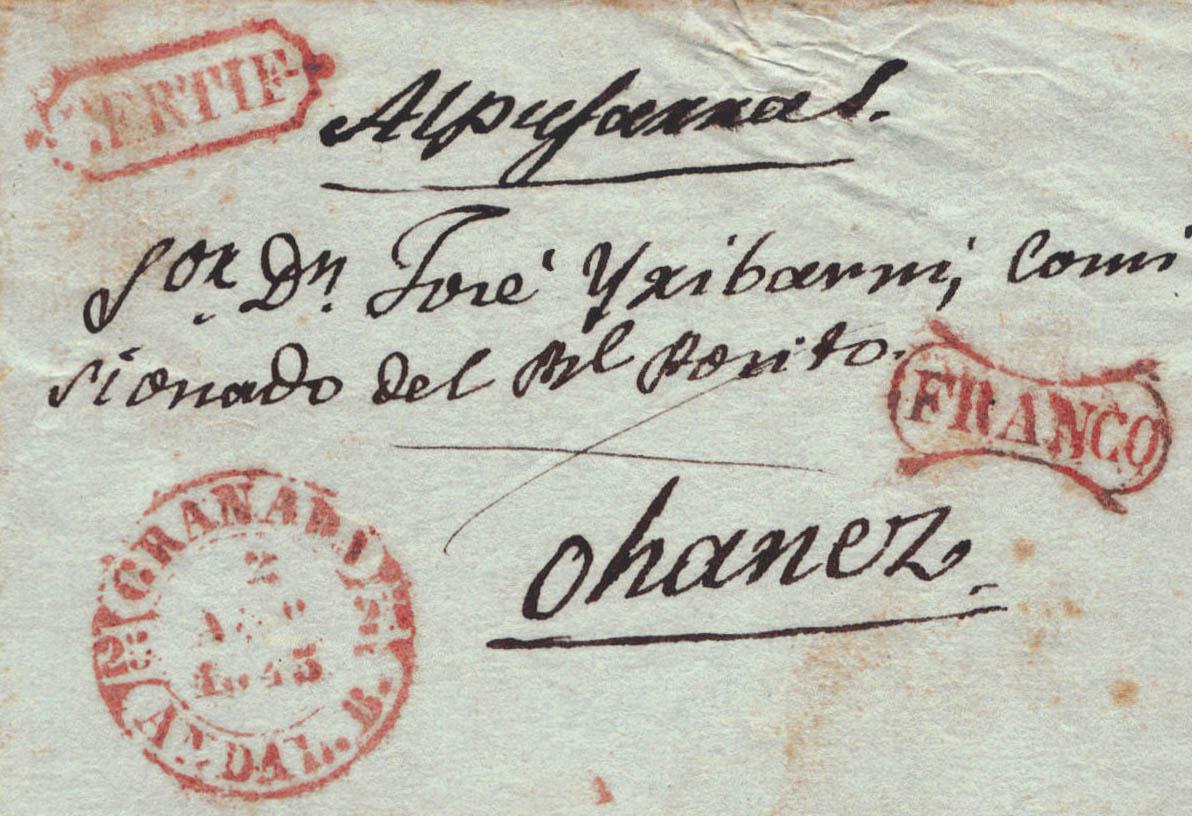 CERTIF
Alpujarras.
Sor. Dn. José Yribarni, Comi
sionado del Rl Posito.
FRANCO
Ohanez.
GRANADA
2
1843
ANDAL. B.